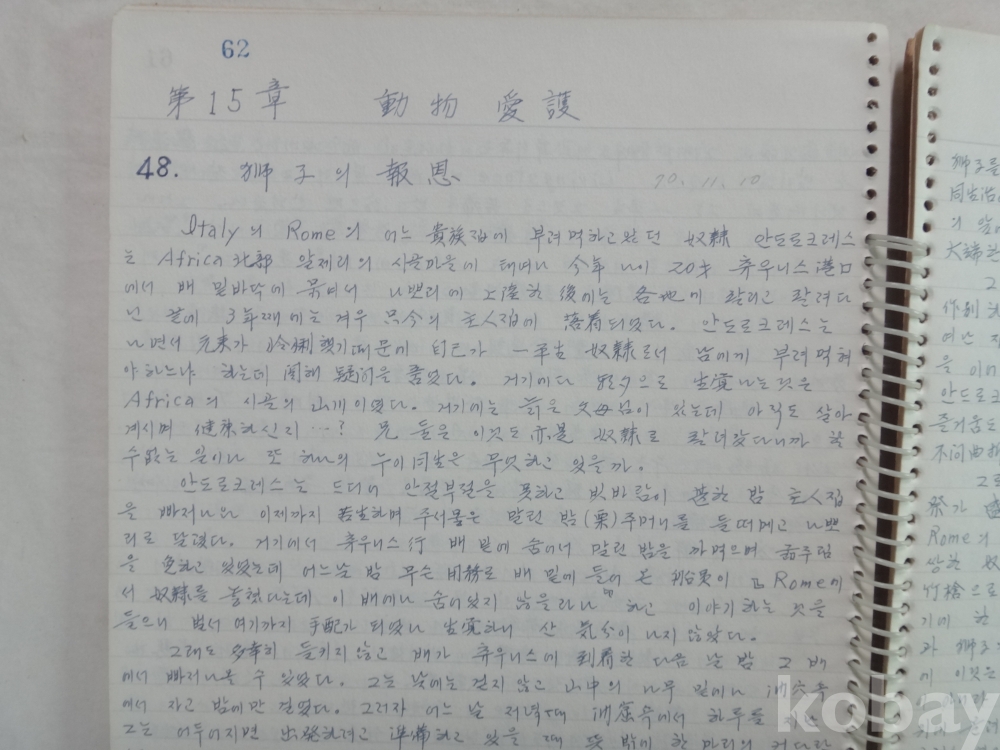 62
第15章 動物 愛護
48. 獅子의 報恩 70. 11. 10
Italy의 Rome의 어느 貴族집에 부려먹하고 있던 奴隸 안도로크레스
는 Africa北部 알제리의 시골마을에 태여나 今年 나이 20才 츄우니스港口
에서 배 밑바닥에 묶여서 나뽀리에 上陸한 後에는 各地에 팔리고 팔려다
닌 끝에 3年째에는 겨우 只今의 主人집에 落着되였다. 안도로크레스는
나면서 元来가 怜悧했기때문에 自己가 一平生 奴隸로서 남에게 부려먹혀
야하느냐 하는데 関해 疑问을 품었다. 거기에다 朝夕으로 生覚나는것은
Africa의 시골의 山개이였다. 거기에는 늙은 父母님이 있는데 아직도 살아
계시며 健康하신지 …? 兄 들은 이것도 亦是 奴隸로 팔려갔다니까 할
수없는 일이나 또 하나의 누이同生은 무엇하고 있을까.
안도로크레스는 드디어 안절부절을 못하고 빗바람이 甚한 밤 主人집
을 빠저나와 이제까지 苦生하며 주서몯은 말린 밤(栗)주머니를 둘떠메고 나뽀
리로 달렸다. 거기에서 츄우니스行 배 밑에 숨어서 말린 밤을 까먹으며 굶주림
을 免하고 있었는데 어느날 밤 무슨 用務로 배 밑에 들어 온 船員이 Rome에
서 奴隸를 놓쳤다는데 이 배에나 숨어있지 않을라나 하고 이야기하는 것을
들으니 벌서 여기까지 手配가 되였나 生覚하니 산 気分이 나지 않았다.
그래도 多幸히 들키지않고 배가 츄우니스에 到着한 다음 날 밤 그 배
에서 빠저나올 수 있었다. 그는 낮에는 걷지 않고 山中의 나무 밑에나 洞穴속
에서 자고 밤에만 걸었다. 그러자 어느 날 저녁때 洞屈속에서 하루를
그는 어두어지면 出発하려고 準備하고 있을 때 뜻 밖에 한 마리의 커다란
獅子를
同生
의
大
그
作別
여난
을
안도로크
즐거움도
不问曲
그
祭가
Rome의
상한
竹槍으로
기에 한
라 獅子
에 이것은
kopay